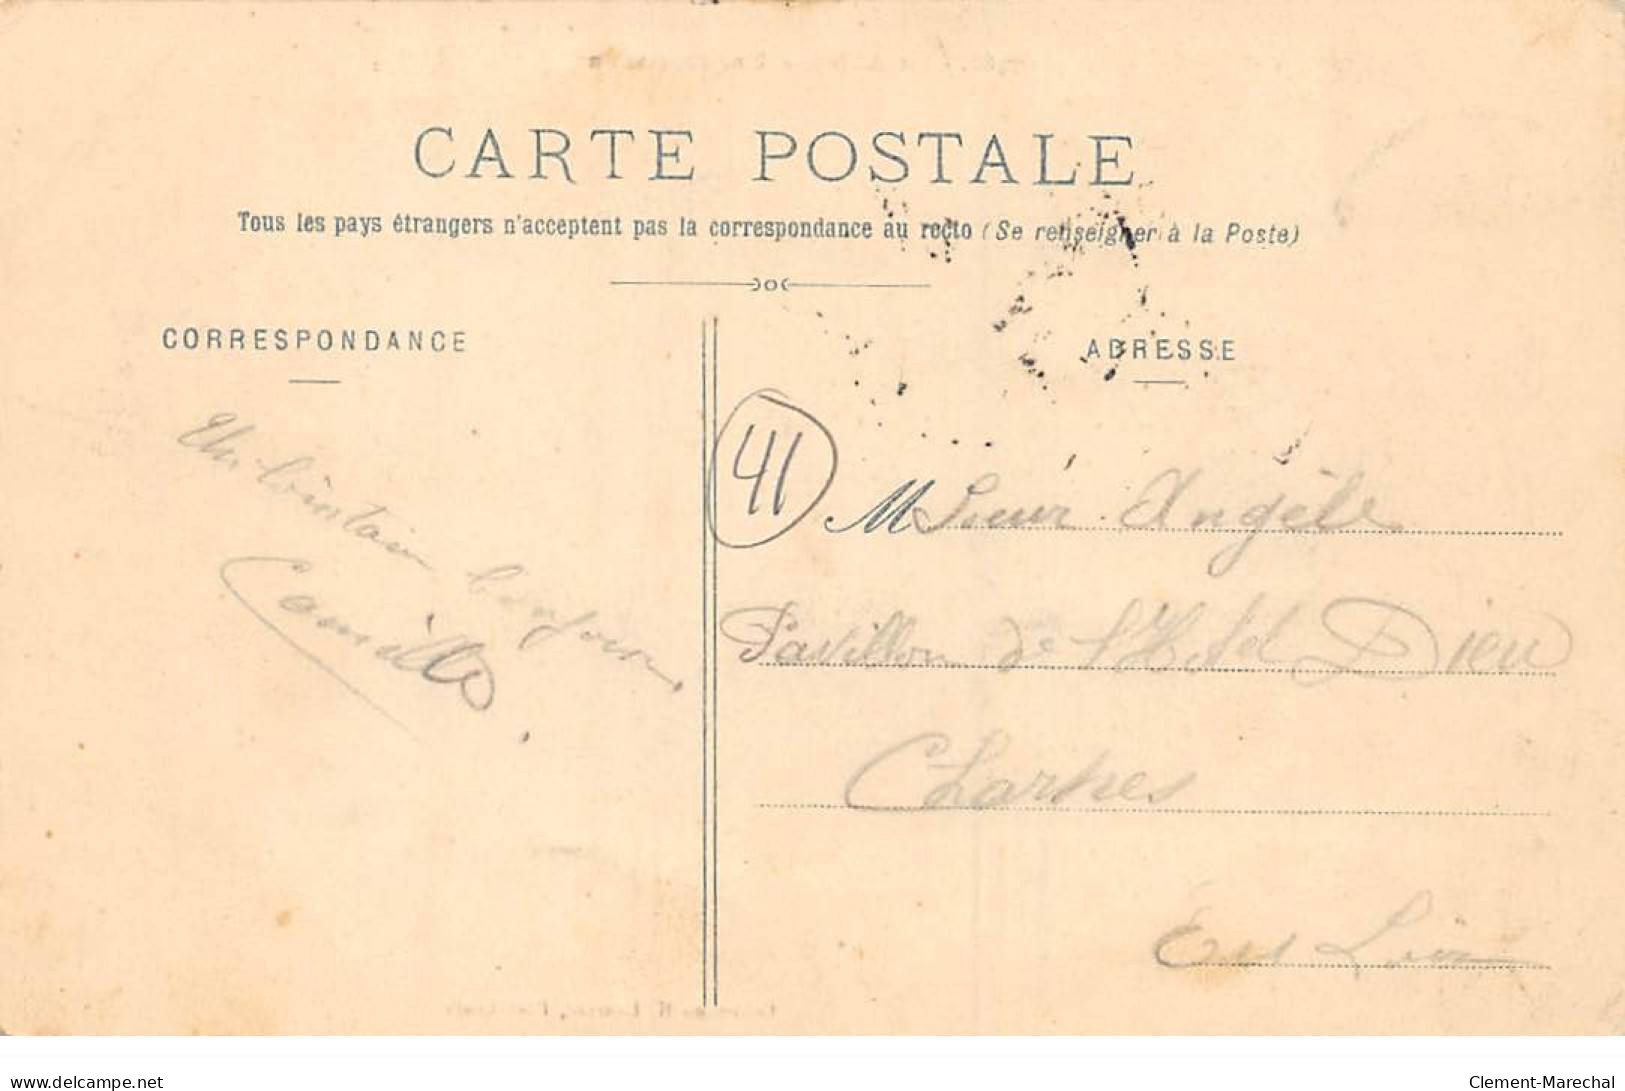 CARTE POSTALE
Tous les pays étrangers n'acceptent pas la correspondance au recto (Se renseigner à la Poste)
CORRESPONDANCE
ADRESSE
Un lointain bonjour.
Camille
41
M Sœur Angèle
Pavillon de l'Hotel Dieu
Chartres
Eure Loir
delcampe.net
Clement-Marechal